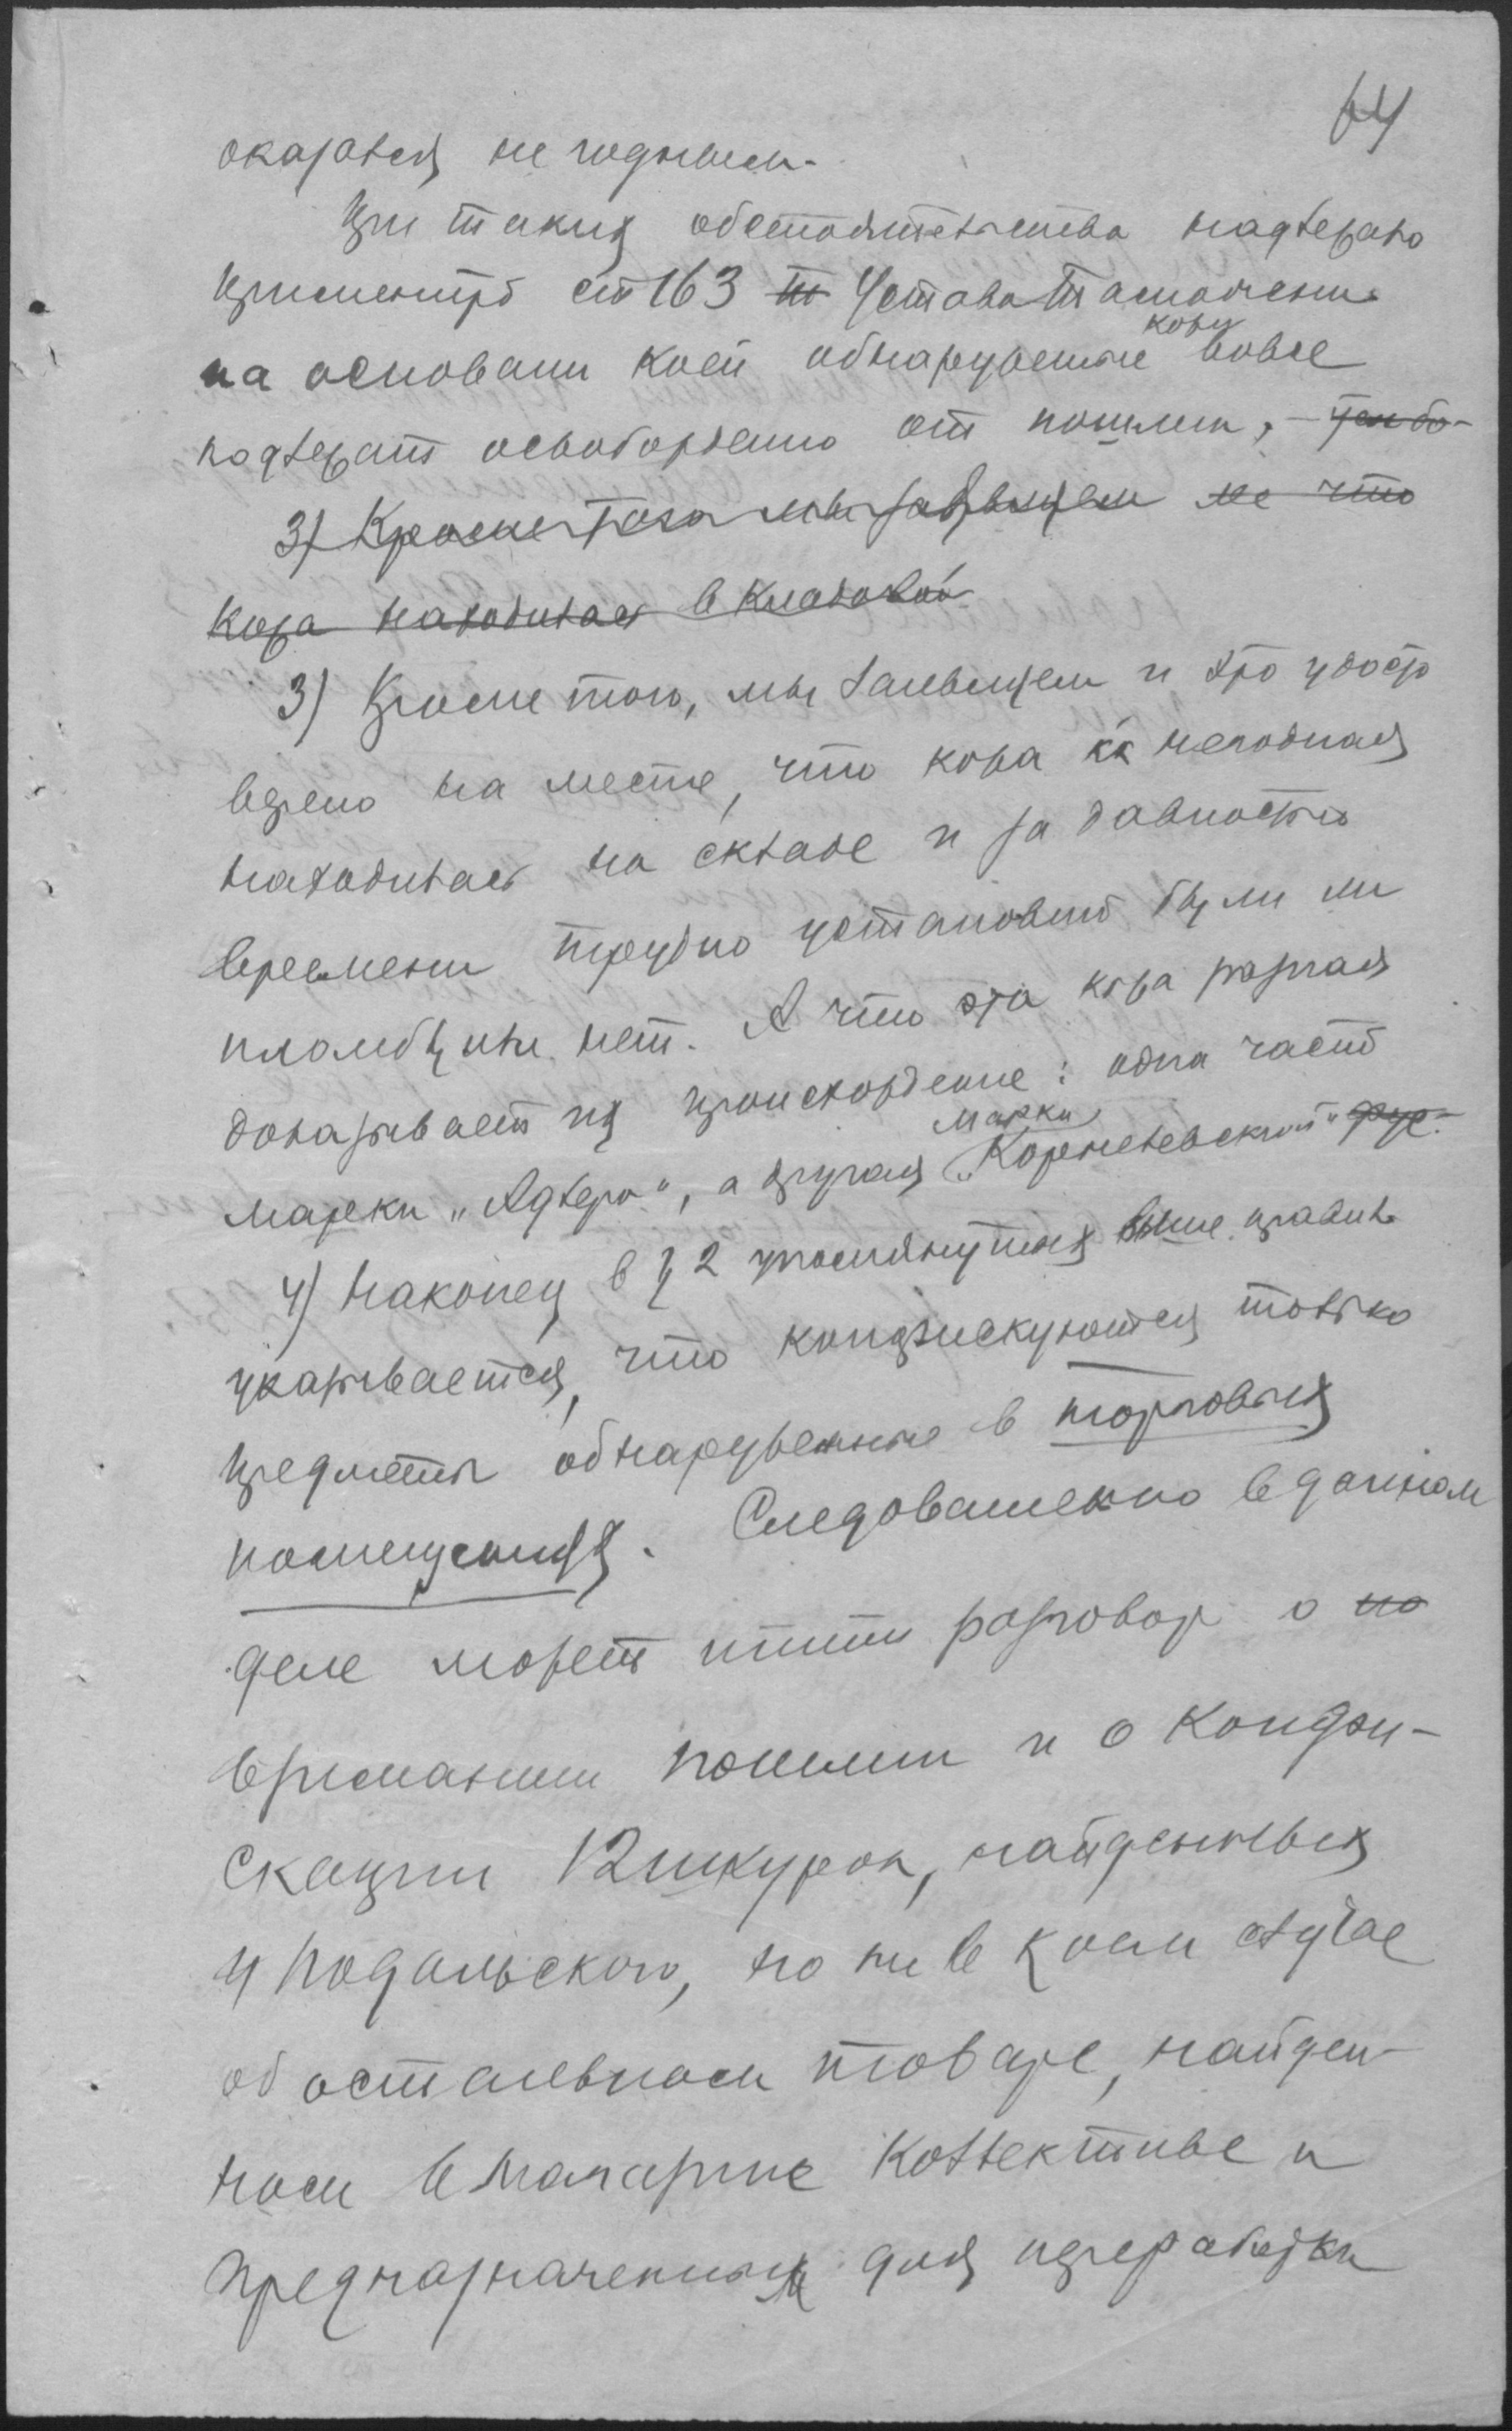 64
оказался не годным.
При таких обстоятельства надлежало
применить ст 163 Ш Устава Таможен.
на основании коей обнаруженые кожи вовсе
подлежат освобождению от пошлин,
3) Кроме того мы заявляем не что
кожа находилась в кладовой
3) Кроме того, мы заявляем и это удосто
верено на месте, что кожа как негодная
находилась на складе и за давностью
времени трудно установить были ли
пломбы или нет. А что эта кожа разная
доказывает их происхождение: одна часть
марки „Адлера", а другая марки „Кореневский"
4) Наконец в § 2 упомянутых выше правил
указывается, что конфискуются только
предметы обнаруженные в торговых
помещениях. Следовательно в данном
деле может итти разговор о по
взимании пошлин и о конфи-
скации 12 шкурок, найденных
у Подольского, но ни в коем случае
об остальном товаре, найден-
ном в магазине Коллектива и
предназначенных для переработки